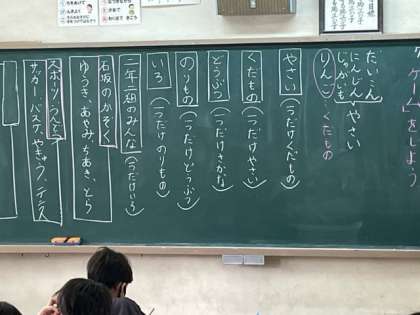 ゲーム」をしよう
だいこん
にんじん
じゃがいも
やさい
りんご…くだもの
やさい(一つだけくだもの)
くだもの(一つだけやさい)
どうぶつ(一つだけさかな)
のりもの(一つだけどうぶつ)
いろ(一つだけのりもの)
二年二組のみんな(一つだけいろ)
石坂のかぞく
ゆうき、あやみ、ちあき、とら
スポーツ
サッカー、バスケ、やきゅう、テニス